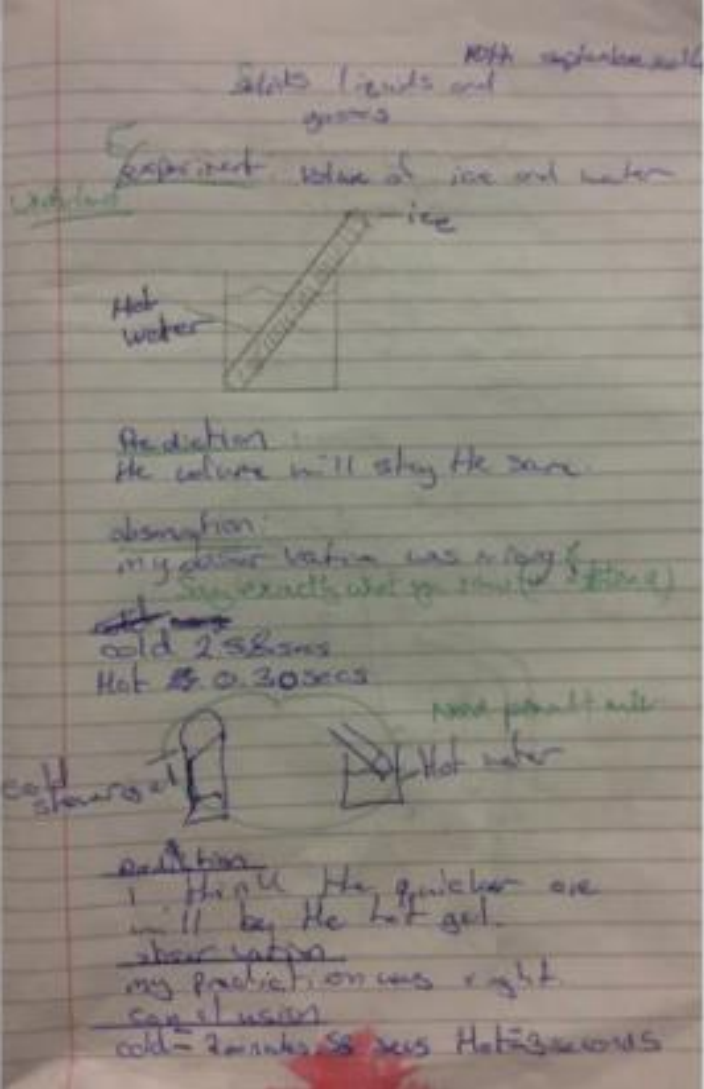 10th september
Solids liquids and
gases
Experiment volume of ice and water
Understand
ice
Hot
water
Prediction:
the volume will stay the same.
observation:
my was wrong
Say exactly what you
cold 2.58 secs
Hot 0.30 secs
Need pencil + ruler
cold
shower gel
Hot water
prediction
I think the quicker one
will by the hot gel.
observation
my prediction was right.
conclusion
cold = 2 minutes 58 secs Hot = 3 seconds